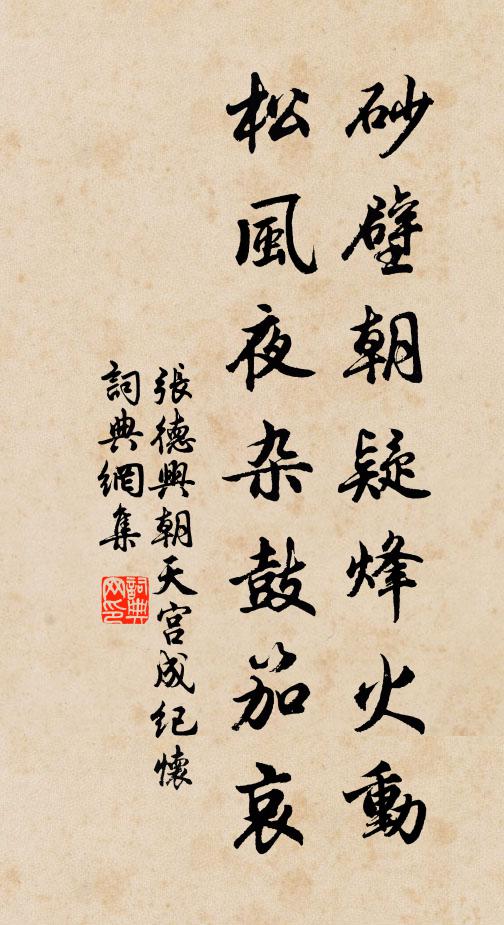 砂壁朝疑烽火動
松風夜杂鼓笳哀
張德興朝天宫成纪懷
詞典網集
詞典网印